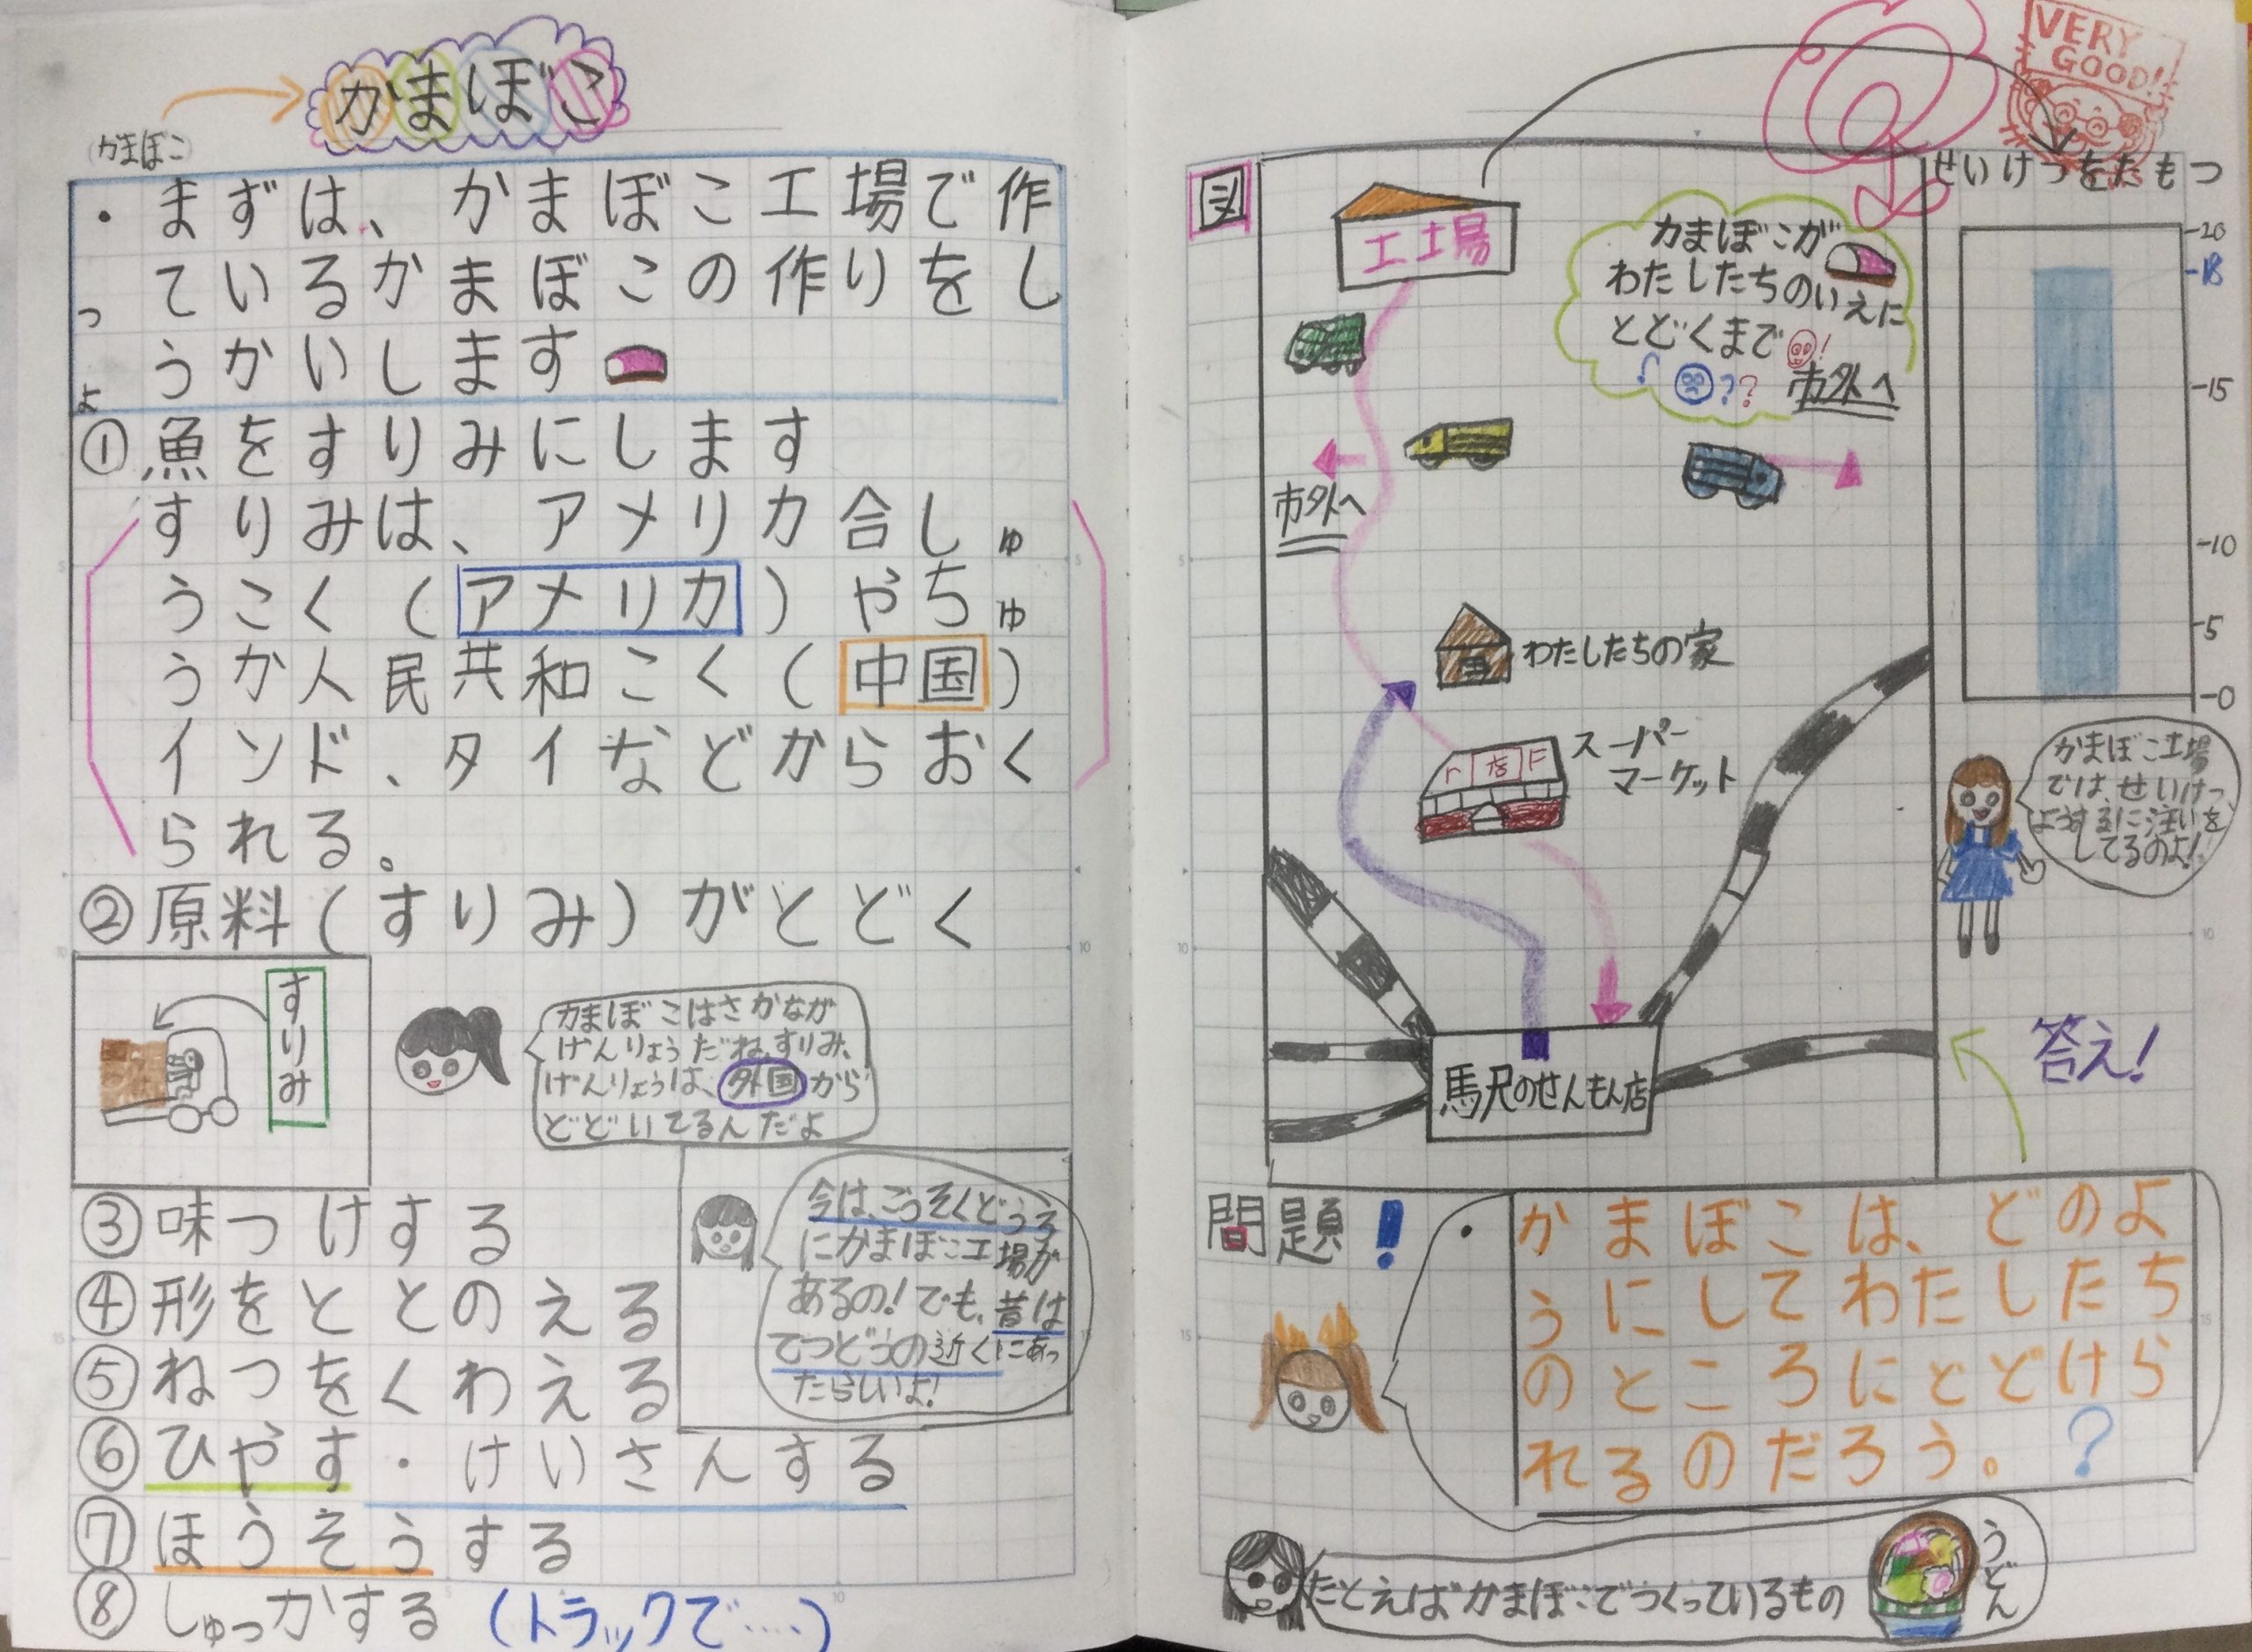 かまぼこ
(かまぼこ)
・まずは、かまぼこ工場で作
っているかまぼこの作りをし
ょうかいします
①魚をすりみにします
すりみは、アメリカ合しゅ
うこく(アメリカ)やちゅ
うか人民共和こく(中国)
インド、タイなどからおく
られる。
②原料(すりみ)がとどく
すりみ
かまぼこはさかなが
げんりょうだね、すりみ、
げんりょうは、外国から
どどいてるんだよ
③味つけする
④形をととのえる
⑤ねつをくわえる
⑥ひやす・けいさんする
⑦ほうそうする
⑧しゅっかする(トラックで....)
今は、こうそくどうろ
にかまぼこ工場が
あるの!でも、昔は
てつどうの近くにあっ
たらしいよ!
VERY
GOOD!
図
工場
かまぼこが
わたしたちのいえに
とどくまで!
??
市外へ
市外へ
わたしたちの家
スーパー
マーケット
店
馬尺のせんもん店
せいけつをたもつ
-20
-18
-15
-10
-5
-0
かまぼこ工場
では、せいけつ
に注いを
してるのよ!
答え!
問題!
・かまぼこは、どのよ
うにしてわたしたち
のところにとどけら
れるのだろう。?
たとえばかまぼこでつくっているもの
うどん